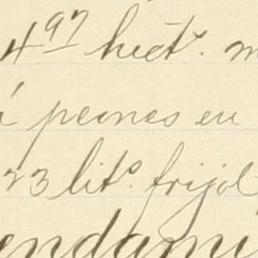 4 97 hect. m
á peones en
23 lits. frijol
endami